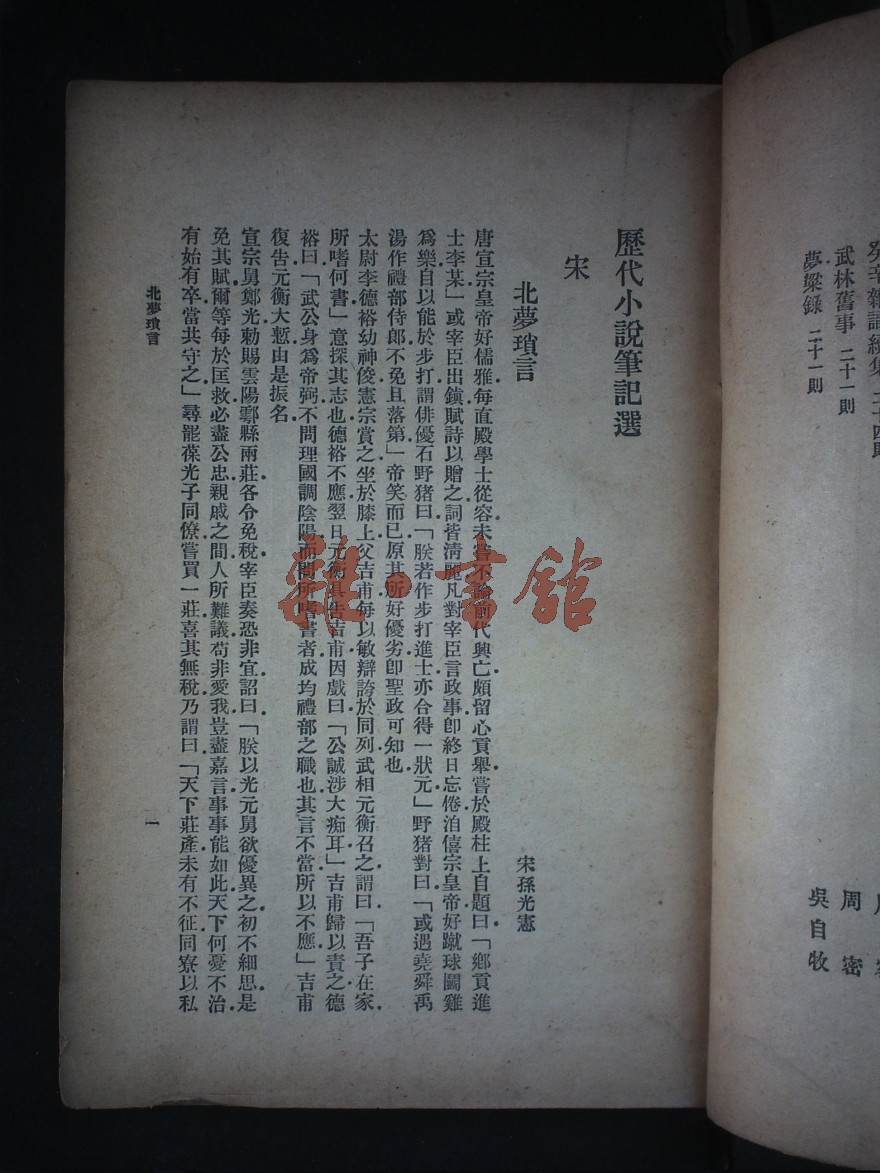 癸辛雜識續集 二十四則
武林舊事 二十一則
夢粱錄 二十一則
周密
吳自牧
歷代小說筆記選
宋
北夢瑣言
宋孫光憲
唐宣宗皇帝好儒雅每直殿學士從容未嘗不論前代興亡頗留心貢舉嘗於殿柱上自題曰「鄉貢進
士李某」或宰臣出鎮賦詩以贈之詞皆清麗凡對宰臣言政事卽終日忘倦洎僖宗皇帝好蹴球鬭雞
爲樂自以能於步打謂俳優石野猪曰「朕若作步打進士亦合得一狀元」野猪對曰「或遇堯舜禹
湯作禮部侍郎不免且落第」帝笑而已原其所好優劣卽聖政可知也
太尉李德裕幼神俊憲宗賞之坐於膝上父吉甫每以敏辯誇於同列武相元衡召之謂曰「吾子在家
所嗜何書」意探其志也德裕不應翌日元衡具告吉甫因戲曰「公誠涉大痴耳」吉甫歸以責之德
裕曰「武公身爲帝弼不問理國調陰陽而問所嗜書者成均禮部之職也其言不當所以不應」吉甫
復告元衡大慙由是振名
宣宗舅鄭光勅賜雲陽鄠縣兩莊各令免稅宰臣奏恐非宜詔曰「朕以光元舅欲優異之初不細思是
免其賦爾等每於匡救必盡公忠親戚之間人所難議苟非愛我豈盡嘉言事事能如此天下何憂不治
有始有卒當共守之」尋罷葆光子同僚嘗買一莊喜其無稅乃謂曰「天下莊產未有不征同寮以私
北夢瑣言
一
雜·書館